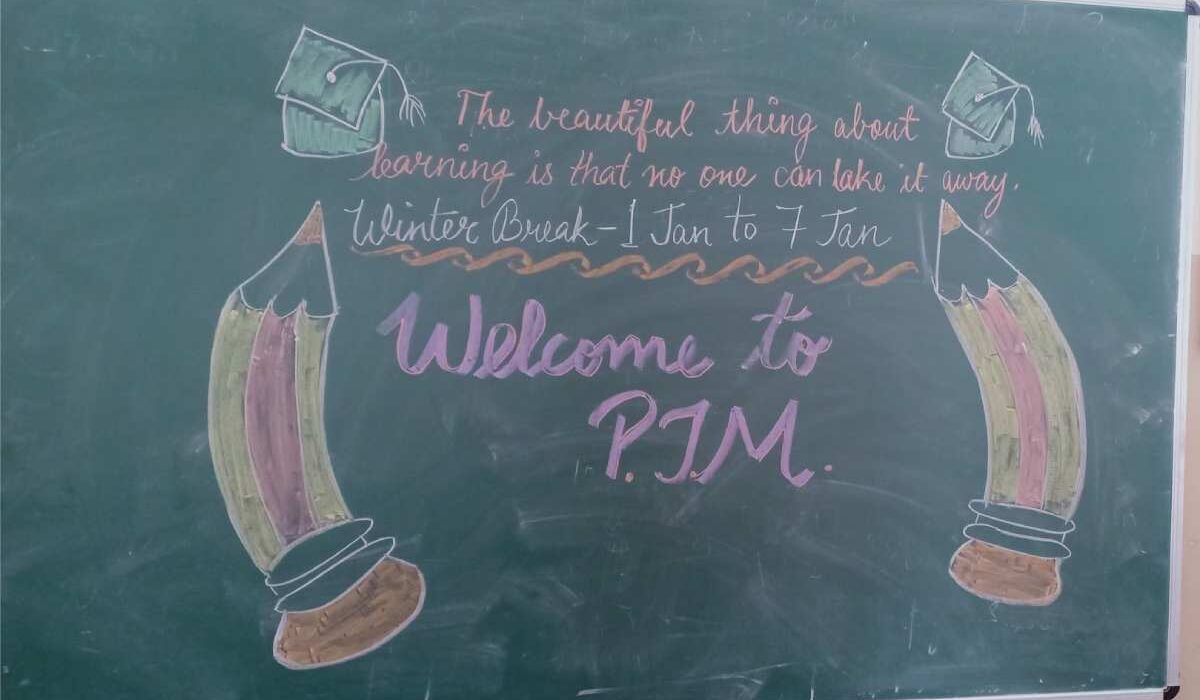 The beautiful thing about
learning is that no one can take it away.
Winter Break - 1 Jan to 7 Jan
Welcome to
P.T.M.